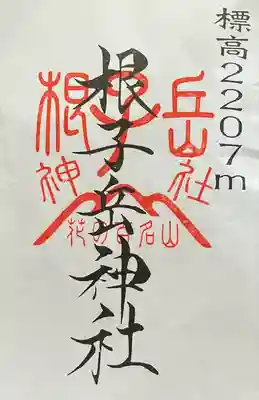 標高2207m
根子岳神社
根子岳神社
花の百名山